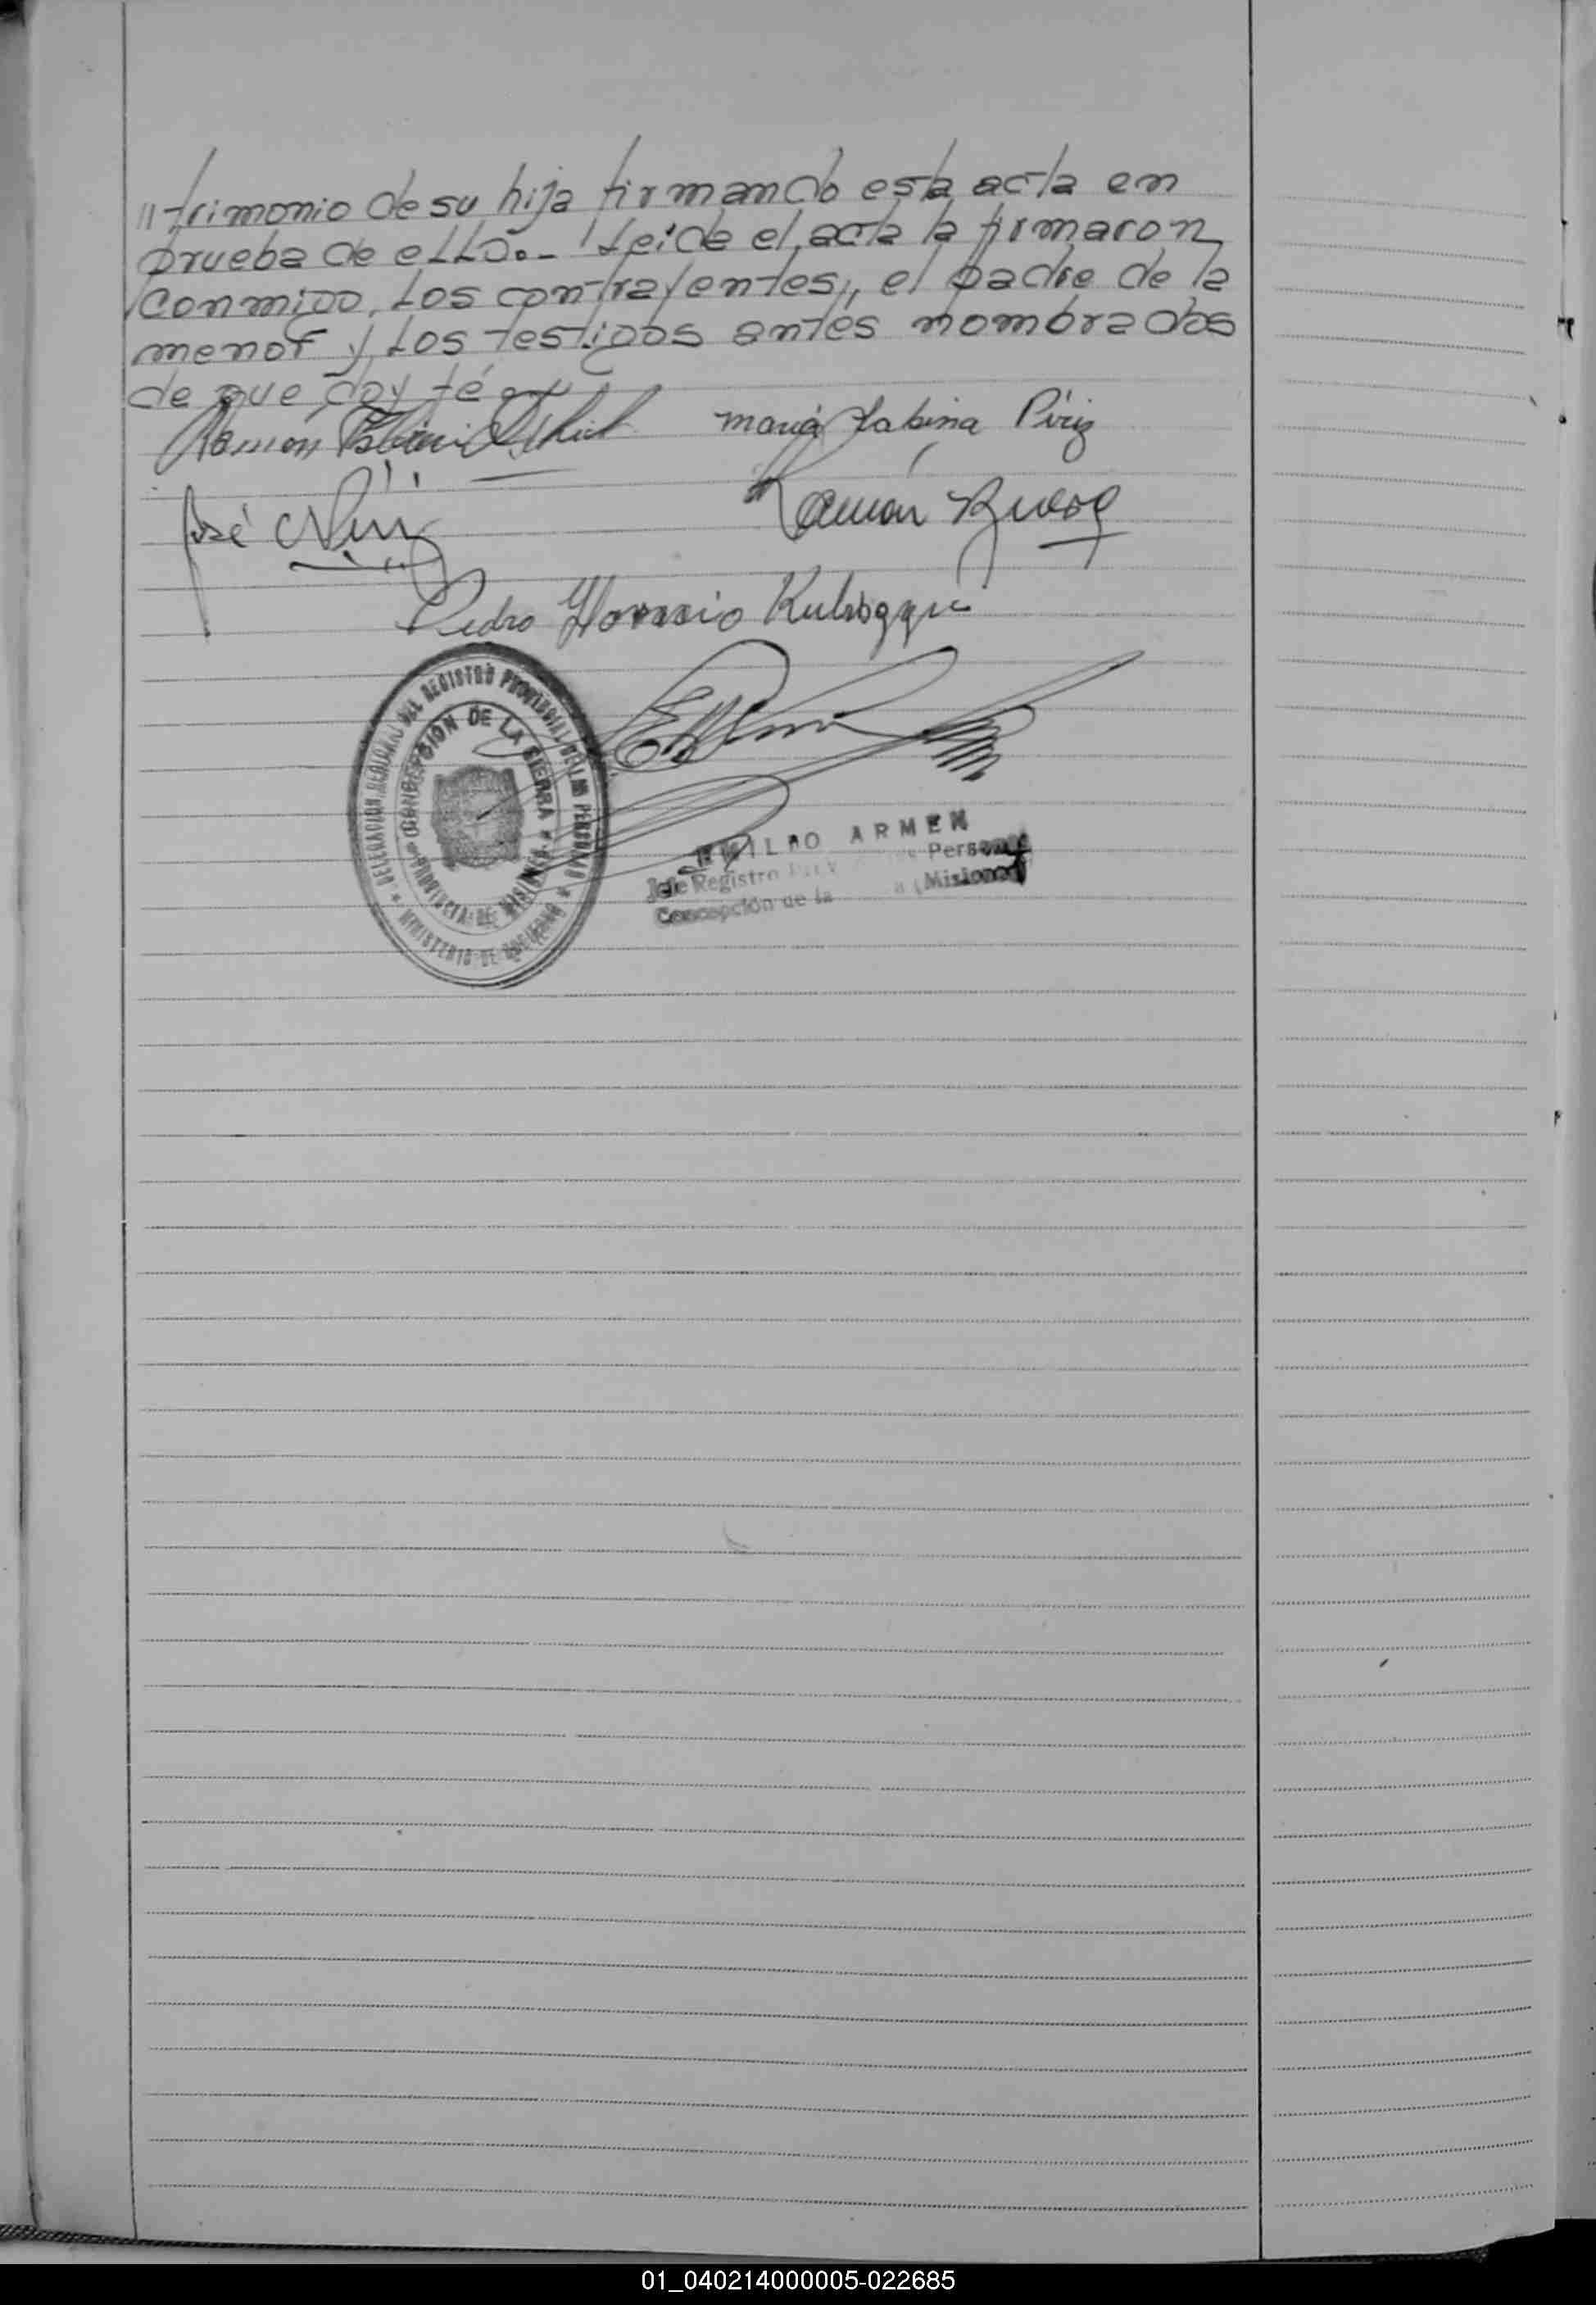 "trimonio de su hija firmando esta acta en
prueba de ello.- Leida el acta la firmaron
conmigo, los contrayentes, el padre de la
menor y los testigos antes nombrados
de que doy fé.-
Ramón Fabian
maría Sabina Píriz
José
Ramón
Pedro Horacio
DELEGACION DEL REGISTRO PROVINCIAL DE LAS PERSONAS
CONCEPCION DE LA SIERRA
PROVINCIA DE MISIONES
MINISTERIO DE GOBIERNO
EMILIO ARMEN
Jefe Registro Personas
Concepción de la (Misiones)
01_040214000005-022685